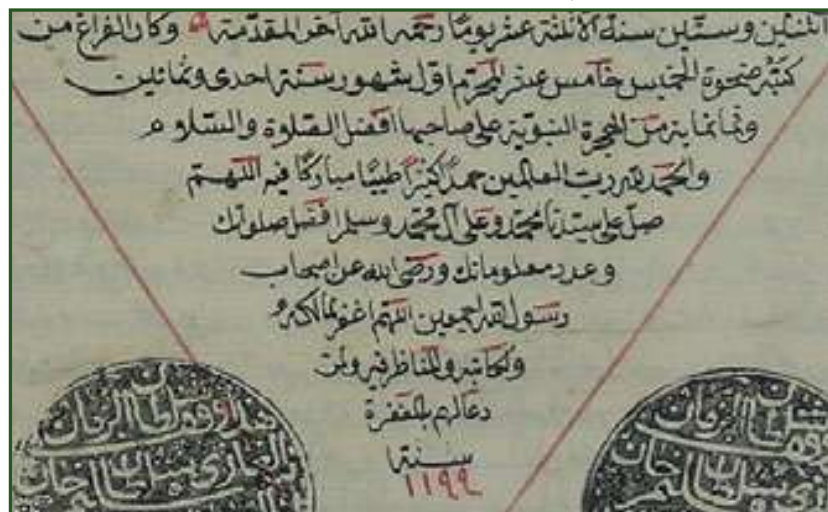 اثنين وستين سنة الا ثلثة عشر يوما رحمه الله آخر المقدمة وكان الفراغ من
كتبه ضحوة الخميس خامس عشر المحرم اول شهور سنة احدى وثمانين
وثمانماية من الهجرة النبوية على صاحبها افضل الصلوة والسلام
والحمد لله رب العالمين حمدا كثيرا طيبا مباركا فيه اللهم
صل على سيدنا محمد وعلى آل محمد وسلم افضل صلوتك
وعدد معلوماتك ورضى الله عن اصحاب
رسول الله اجمعين اللهم اغفر لمالكه و
لكاتبه والناظر فيه ولمن
دعا لهم بالمغفرة
سنة
١١٩٩